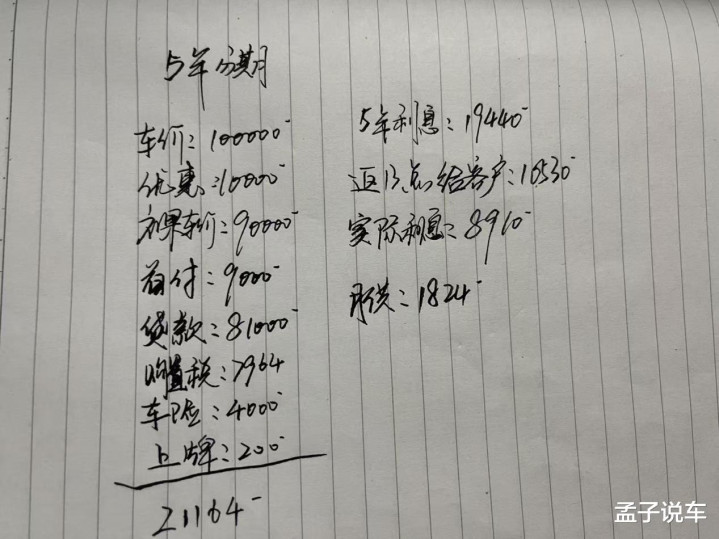 5年分期
车价：100000
优惠：10000
裸车价：90000
首付：9000
贷款：81000
购置税：7964
车险：4000
上牌：200
21164
5年利息：19440
返13点给客户：10530
实际利息：8910
月供：1824
孟子说车